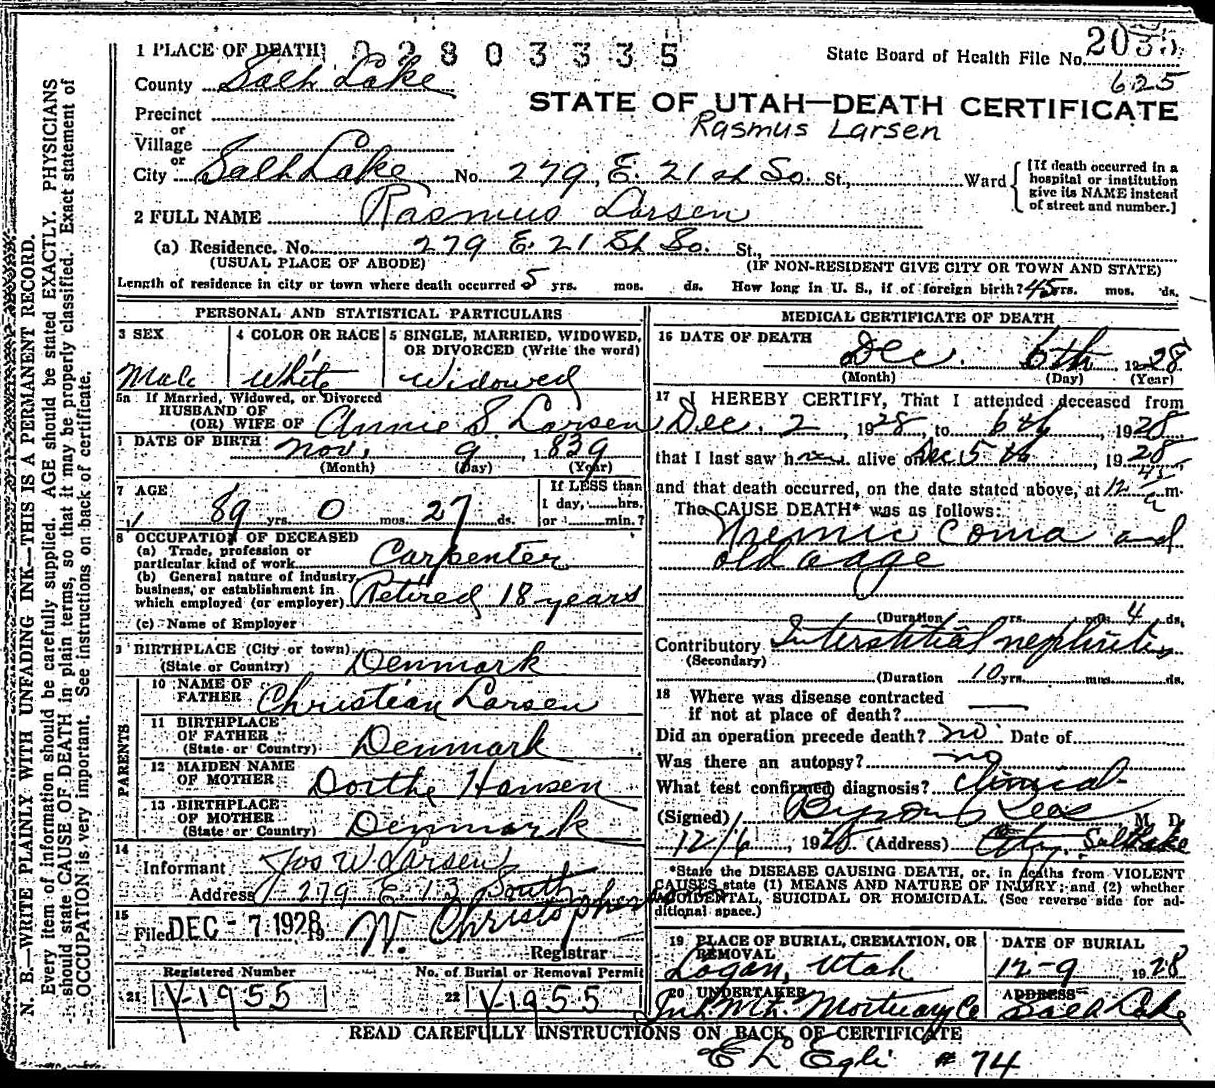 N. B.—WRITE PLAINLY WITH UNFADING INK—THIS IS A PERMANENT RECORD.
Every item of information should be carefully supplied. AGE should be stated EXACTLY. PHYSICIANS
should state CAUSE OF DEATH in plain terms, so that it may be properly classified. Exact statement of
OCCUPATION is very important. See instructions on back of certificate.
1 PLACE OF DEATH
State Board of Health File No. 2035
625
County Salt Lake
STATE OF UTAH—DEATH CERTIFICATE
Rasmus Larsen
Precinct
or
Village
or
City Salt Lake No. 279 E. 21 st So. St., Ward
[If death occurred in a
hospital or institution
give its NAME instead
of street and number.]
2 FULL NAME Rasmus Larsen
(a) Residence. No. 279 E. 21 St So. St.,
(USUAL PLACE OF ABODE) (IF NON-RESIDENT GIVE CITY OR TOWN AND STATE)
Length of residence in city or town where death occurred 5 yrs. mos. ds. How long in U. S., if of foreign birth? 45 yrs. mos. ds.
PERSONAL AND STATISTICAL PARTICULARS
3 SEX Male
4 COLOR OR RACE White
5 SINGLE, MARRIED, WIDOWED,
OR DIVORCED (Write the word)
Widowed
5a If Married, Widowed, or Divorced
HUSBAND OF
(OR) WIFE OF Annie S. Larsen
DATE OF BIRTH Nov. 9 1839
(Month) (Day) (Year)
7 AGE 89 yrs. 0 mos. 27 ds.
If LESS than
1 day, hrs.
or min.?
8 OCCUPATION OF DECEASED
(a) Trade, profession or
particular kind of work Carpenter
(b) General nature of industry,
business, or establishment in
which employed (or employer) Retired 18 years
(c) Name of Employer
9 BIRTHPLACE (City or town)
(State or Country) Denmark
PARENTS
10 NAME OF
FATHER Christian Larsen
11 BIRTHPLACE
OF FATHER
(State or Country) Denmark
12 MAIDEN NAME
OF MOTHER Dorthe Hansen
13 BIRTHPLACE
OF MOTHER
(State or Country) Denmark
14
Informant Jos W Larsen
Address 279 E. 13 South
15
Filed DEC - 7 1928 19 W. Christopherson
Registrar
Registered Number
21 Y-1955
No. of Burial or Removal Permit
22 Y-1955
MEDICAL CERTIFICATE OF DEATH
16 DATE OF DEATH
Dec. 6th 1928
(Month) (Day) (Year)
17 I HEREBY CERTIFY, That I attended deceased from
Dec. 2, 1928, to 6th, 1928
that I last saw h alive on Dec 5th, 1928,
and that death occurred, on the date stated above, at 12 45 a m.
The CAUSE DEATH* was as follows:
Uremic coma and
old age
(Duration yrs. mos. 4 ds.
Contributory Interstitial nephritis
(Secondary)
(Duration 10 yrs. mos. ds.
18 Where was disease contracted
if not at place of death?
Did an operation precede death? no Date of
Was there an autopsy? no
What test confirmed diagnosis? Clinical
(Signed) M. D.
12/6, 1928 (Address) City, Salt Lake
*State the DISEASE CAUSING DEATH, or, in deaths from VIOLENT
CAUSES, state (1) MEANS AND NATURE OF INJURY; and (2) whether
ACCIDENTAL, SUICIDAL OR HOMICIDAL. (See reverse side for ad-
ditional space.)
19 PLACE OF BURIAL, CREMATION, OR
REMOVAL
Logan, Utah
DATE OF BURIAL
12-9 1928
20 UNDERTAKER
Int. Mt. Mortuary Co
ADDRESS
Salt Lake
READ CAREFULLY INSTRUCTIONS ON BACK OF CERTIFICATE
E L Egli #74